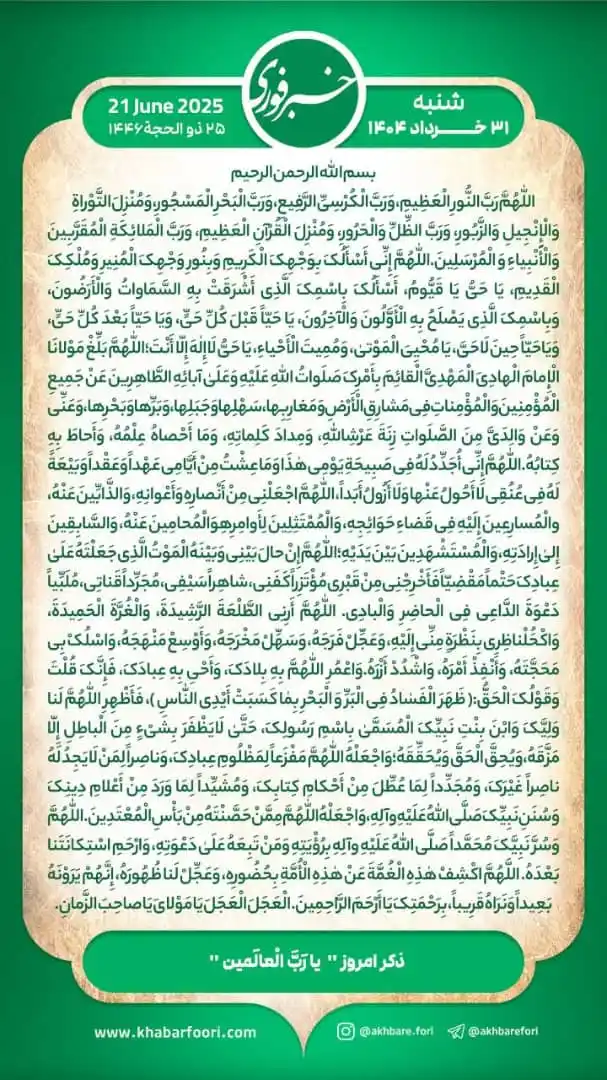 خبرفوری
شنبه
۳۱ خــرداد ۱۴۰۴
21 June 2025
۲۵ ذو الحجة ۱۴۴۶
بسم الله الرحمن الرحیم
اللّٰهُمَّ رَبَّ النُّورِ الْعَظِیمِ، وَرَبَّ الْکُرْسِیِّ الرَّفِیعِ، وَرَبَّ الْبَحْرِ الْمَسْجُورِ، وَمُنْزِلَ التَّوْراةِ
وَالْإِنْجِیلِ وَالزَّبُورِ، وَرَبَّ الظِّلِّ وَالْحَرُورِ، وَمُنْزِلَ الْقُرْآنِ الْعَظِیمِ، وَرَبَّ الْمَلائِکَةِ الْمُقَرَّبِینَ
وَالْأَنْبِیاءِ وَ الْمُرْسَلِینَ، اللّٰهُمَّ إِنِّی أَسْأَلُکَ بِوَجْهِکَ الْکَرِیمِ وَبِنُورِ وَجْهِکَ الْمُنِیرِ وَمُلْکِکَ
الْقَدِیمِ، یَا حَیُّ یَا قَیُّومُ، أَسْأَلُکَ بِاسْمِکَ الَّذِی أَشْرَقَتْ بِهِ السَّمَاوَاتُ وَالْأَرَضُونَ،
وَبِاسْمِکَ الَّذِی یَصْلَحُ بِهِ الْأَوَّلُونَ وَالْآخِرُونَ، یَا حَیّاً قَبْلَ کُلِّ حَیٍّ، وَیَا حَیّاً بَعْدَ کُلِّ حَیٍّ،
وَیَاحَیّاً حِینَ لَاحَیَّ، یَا مُحْیِیَ الْمَوْتیٰ، وَمُمِیتَ الْأَحْیاءِ، یَاحَیُّ لَاإِلهَ إِلّا أَنْتَ؛اللّٰهُمَّ بَلِّغْ مَوْلانَا
الْإِمامَ الْهادِیَ الْمَهْدِیَّ الْقائِمَ بِأَمْرِکَ صَلَواتُ اللّٰهِ عَلَیْهِ وَ عَلَیٰ آبائِهِ الطَّاهِرِینَ عَنْ جَمِیعِ
الْمُؤْمِنِینَ وَالْمُؤْمِناتِ فِی مَشارِقِ الْأَرْضِ وَمَغارِبِها، سَهْلِها وَجَبَلِها، وَبَرِّها وَبَحْرِها، وَعَنِّی
وَعَنْ وَالِدَیَّ مِنَ الصَّلَواتِ زِنَةَ عَرْشِاللّٰهِ، وَمِدادَ کَلِماتِهِ، وَمَا أَحْصاهُ عِلْمُهُ، وَأَحاطَ بِهِ
کِتابُهُ. اللّٰهُمَّ إِنِّی أُجَدِّدُ لَهُ فِی صَبِیحَةِ یَوْمِی هٰذَا وَمَا عِشْتُ مِنْ أَیَّامِی عَهْداً وَعَقْداً وَبَیْعَةً
لَهُ فِی عُنُقِی لَاأَحُولُ عَنْها وَلَا أَزُولُ أَبَداً، اللّٰهُمَّ اجْعَلْنِی مِنْ أَنْصارِهِ وَأَعْوانِهِ، وَالذَّابِّینَ عَنْهُ،
والْمُسارِعِینَ إِلَیْهِ فِی قَضاءِ حَوَائِجِهِ، وَالْمُمْتَثِلِینَ لِأَوامِرِهِ وَالْمُحامِینَ عَنْهُ، وَالسَّابِقِینَ
إِلیٰ إِرادَتِهِ، وَالْمُسْتَشْهَدِینَ بَیْنَ یَدَیْهِ؛اللّٰهُمَّ إِنْ حالَ بَیْنِی وَبَیْنَهُ الْمَوْتُ الَّذِی جَعَلْتَهُ عَلَیٰ
عِبادِکَ حَتْماً مَقْضِیّاً فَأَخْرِجْنِی مِنْ قَبْرِی مُؤْتَزِراً کَفَنِی، شاهِراً سَیْفِی، مُجَرِّداً قَناتِی، مُلَبِّیاً
دَعْوَةَ الدَّاعِی فِی الْحاضِرِ وَالْبادِی. اللّٰهُمَّ أَرِنِی الطَّلْعَةَ الرَّشِیدَةَ، وَالْغُرَّةَ الْحَمِیدَةَ،
وَاکْحُلْناظِرِی بِنَظْرَةٍ مِنِّی إِلَیْهِ، وَعَجِّلْ فَرَجَهُ، وَسَهِّلْ مَخْرَجَهُ، وَأَوْسِعْ مَنْهَجَهُ، وَاسْلُکْ بِی
مَحَجَّتَهُ، وَأَنْفِذْ أَمْرَهُ، وَاشْدُدْ أَزْرَهُ. وَاعْمُرِ اللّٰهُمَّ بِهِ بِلادَکَ، وَأَحْیِ بِهِ عِبادَکَ، فَإِنَّکَ قُلْتَ
وَقَوْلُکَ الْحَقُّ:( ظَهَرَ الْفَسادُ فِی الْبَرِّ وَ الْبَحْرِ بِمٰا کَسَبَتْ أَیْدِی النّٰاسِ )، فَأَظْهِرِ اللّٰهُمَّ لَنا
وَلِیَّکَ وَابْنَ بِنْتِ نَبِیِّکَ الْمُسَمَّیٰ بِاسْمِ رَسُولِکَ، حَتَّیٰ لَایَظْفَرَ بِشَیْءٍ مِنَ الْباطِلِ إِلّا
مَزَّقَهُ، وَیُحِقَّ الْحَقَّ وَیُحَقِّقَهُ؛وَاجْعَلْهُ اللّٰهُمَّ مَفْزَعاً لِمَظْلُومِ عِبادِکَ، وَناصِراً لِمَنْ لَایَجِدُ لَهُ
ناصِراً غَیْرَکَ، وَمُجَدِّداً لِمَا عُطِّلَ مِنْ أَحْکامِ کِتابِکَ، وَمُشَیِّداً لِمَا وَرَدَ مِنْ أَعْلامِ دِینِکَ
وَسُنَنِ نَبِیِّکَ صَلَّی اللّٰهُ عَلَیْهِ وَآلِهِ، وَاجْعَلْهُ اللّٰهُمَّ مِمَّنْ حَصَّنْتَهُ مِنْ بَأْسِ الْمُعْتَدِینَ. اللّٰهُمَّ
وَسُرَّ نَبِیَّکَ مُحَمَّداً صَلَّی اللّٰهُ عَلَیْهِ وَآلِهِ بِرُؤْیَتِهِ وَمَنْ تَبِعَهُ عَلَیٰ دَعْوَتِهِ، وَارْحَمِ اسْتِکانَتَنا
بَعْدَهُ. اللّٰهُمَّ اکْشِفْ هٰذِهِ الْغُمَّةَ عَنْ هٰذِهِ الْأُمَّةِ بِحُضُورِهِ، وَعَجِّلْ لَنا ظُهُورَهُ، إِنَّهُمْ یَرَوْنَهُ
بَعِیداً وَنَرَاهُ قَرِیباً، بِرَحْمَتِکَ یَا أَرْحَمَ الرَّاحِمِینَ. الْعَجَلَ الْعَجَلَ یَا مَوْلایَ یَا صاحِبَ الزَّمانِ.
ذکر امروز " یا رَبَّ الْعالَمین "
www.khabarfoori.com
@akhbare.fori
@akhbarefori